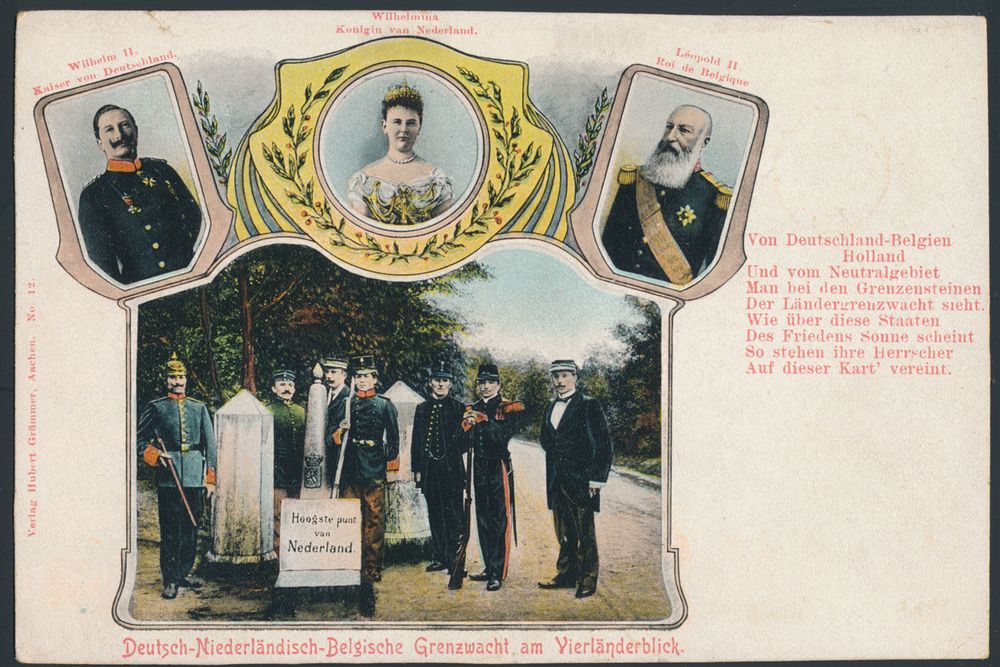 Wilhelmina
Konigin van Nederland.
Wilhelm II.
Kaiser von Deutschland.
Léopold II
Roi de Belgique
Von Deutschland-Belgien
Holland
Und vom Neutralgebiet
Man bei den Grenzensteinen
Der Ländergrenzwacht sieht.
Wie über diese Staaten
Des Friedens Sonne scheint
So stehen ihre Herrscher
Auf dieser Kart' vereint.
Verlag Hubert Grümmer, Aachen. No. 12
Hoogste punt
van
Nederland.
Deutsch-Niederländisch-Belgische Grenzwacht am Vierländerblick.